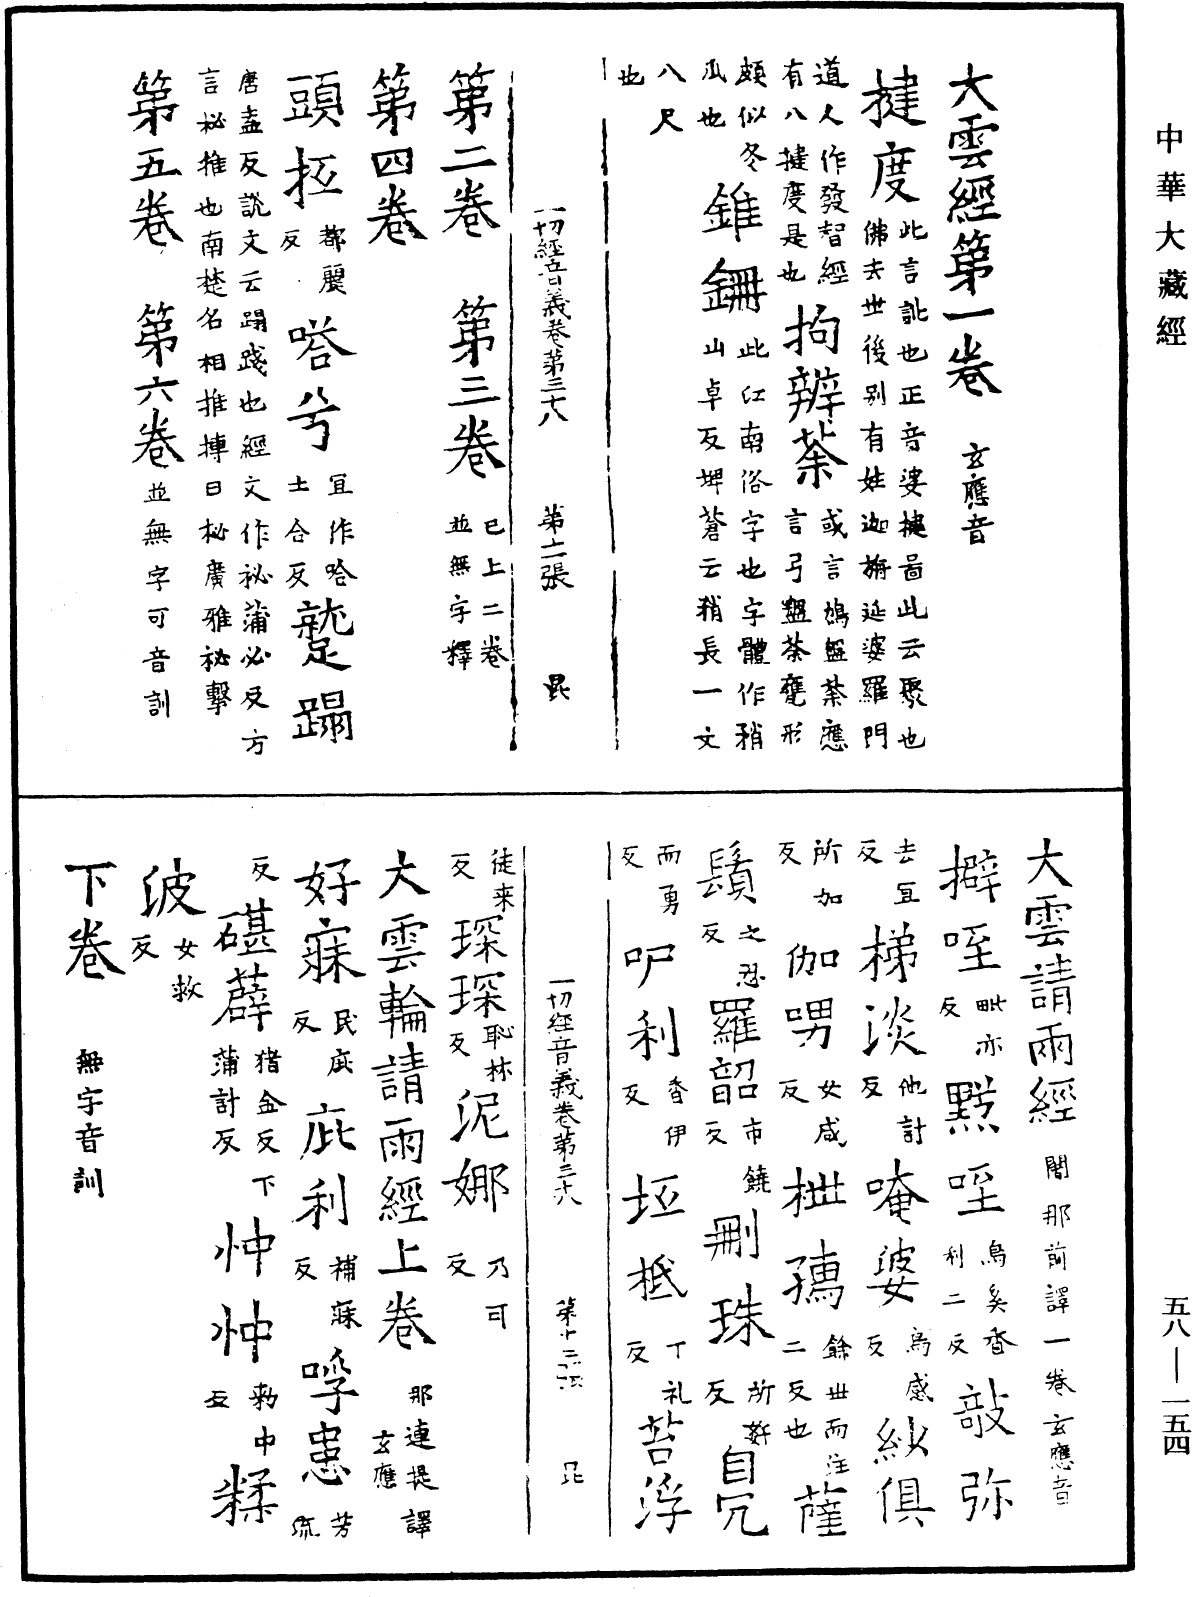 中華大藏經
大雲經第一卷 玄應音
揵度 此言訛也正音婆揵啚此云聚也
佛去世後別有姓迦旃延婆羅門
道人作發智經
有八揵度是也 拘辨荼 或言鳩盤荼應
言弓盤荼甕形
頗似冬
瓜也 錐鉚 此江南俗字也字體作矟
山卓反埤蒼云矟長一丈
八尺
也
一切經音義卷第三十八 第十二張 昆
第二卷 第三卷 已上二卷
並無字釋
第四卷
頭抠 都麗
反 嗒兮 宜作哈
土合反 蹔蹋
唐盍反說文云蹋踐也經文作祕蒲必反方
言祕推也南楚名相推搏曰祕廣雅祕擊
第五卷 第六卷 並無字可音訓
大雲請雨經 闍那崛譯一卷玄應音
擗咥 毗亦
反 黳咥 烏奚香
利二反 敲弥
去宜
反 梯淡 他計
反 唵婆 烏感
反 紗俱
所加
反 伽喟 女咸
反 枻䴌 餘世而注
二反也 薩
鬚 之忍
反 羅韶 市饒
反 刪珠 所姧
反 自冗
而勇
反 呬利 香伊
反 坘柢 丁礼
反 苔浮
一切經音義卷第三十八 第十三張 昆
徒来
反 琛琛 恥林
反 泥娜 乃可
反
大雲輪請雨經上卷 那連提譯
玄應
好寐 民庇
反 庇利 補寐
反 呼惠 芳
流
反 磋薜 猪金反下
蒲計反 忡忡 勑中
反 糅
波 女救
反
下卷 無字音訓
五八—一五四